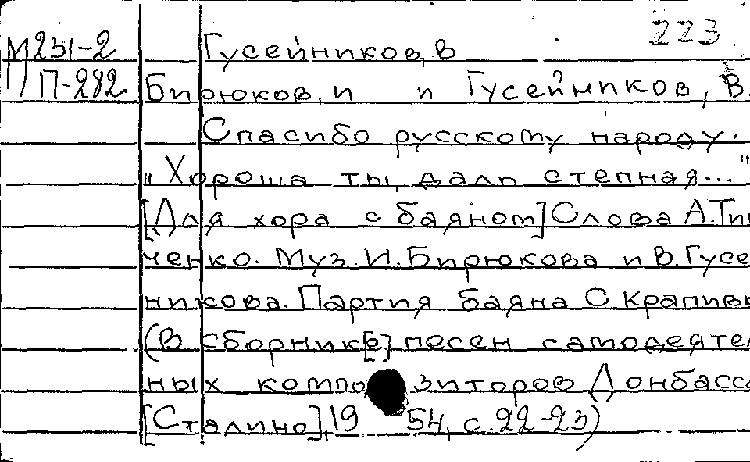 223
М231-2 Гусейников, В
П-282 Бирюков, И и Гусейников, В.
Спасибо русскому народу.
"Хороша ты, даль степная..."
[Для хора с баяном] Слова А.Тим
ченко. Муз. И.Бирюкова и В.Гусе
никова. Партия баяна С.Крапивн
(В сборник[е] песен самодеятел
ных компо зиторов Донбасса
[Сталино], 19 54, с.22-23)